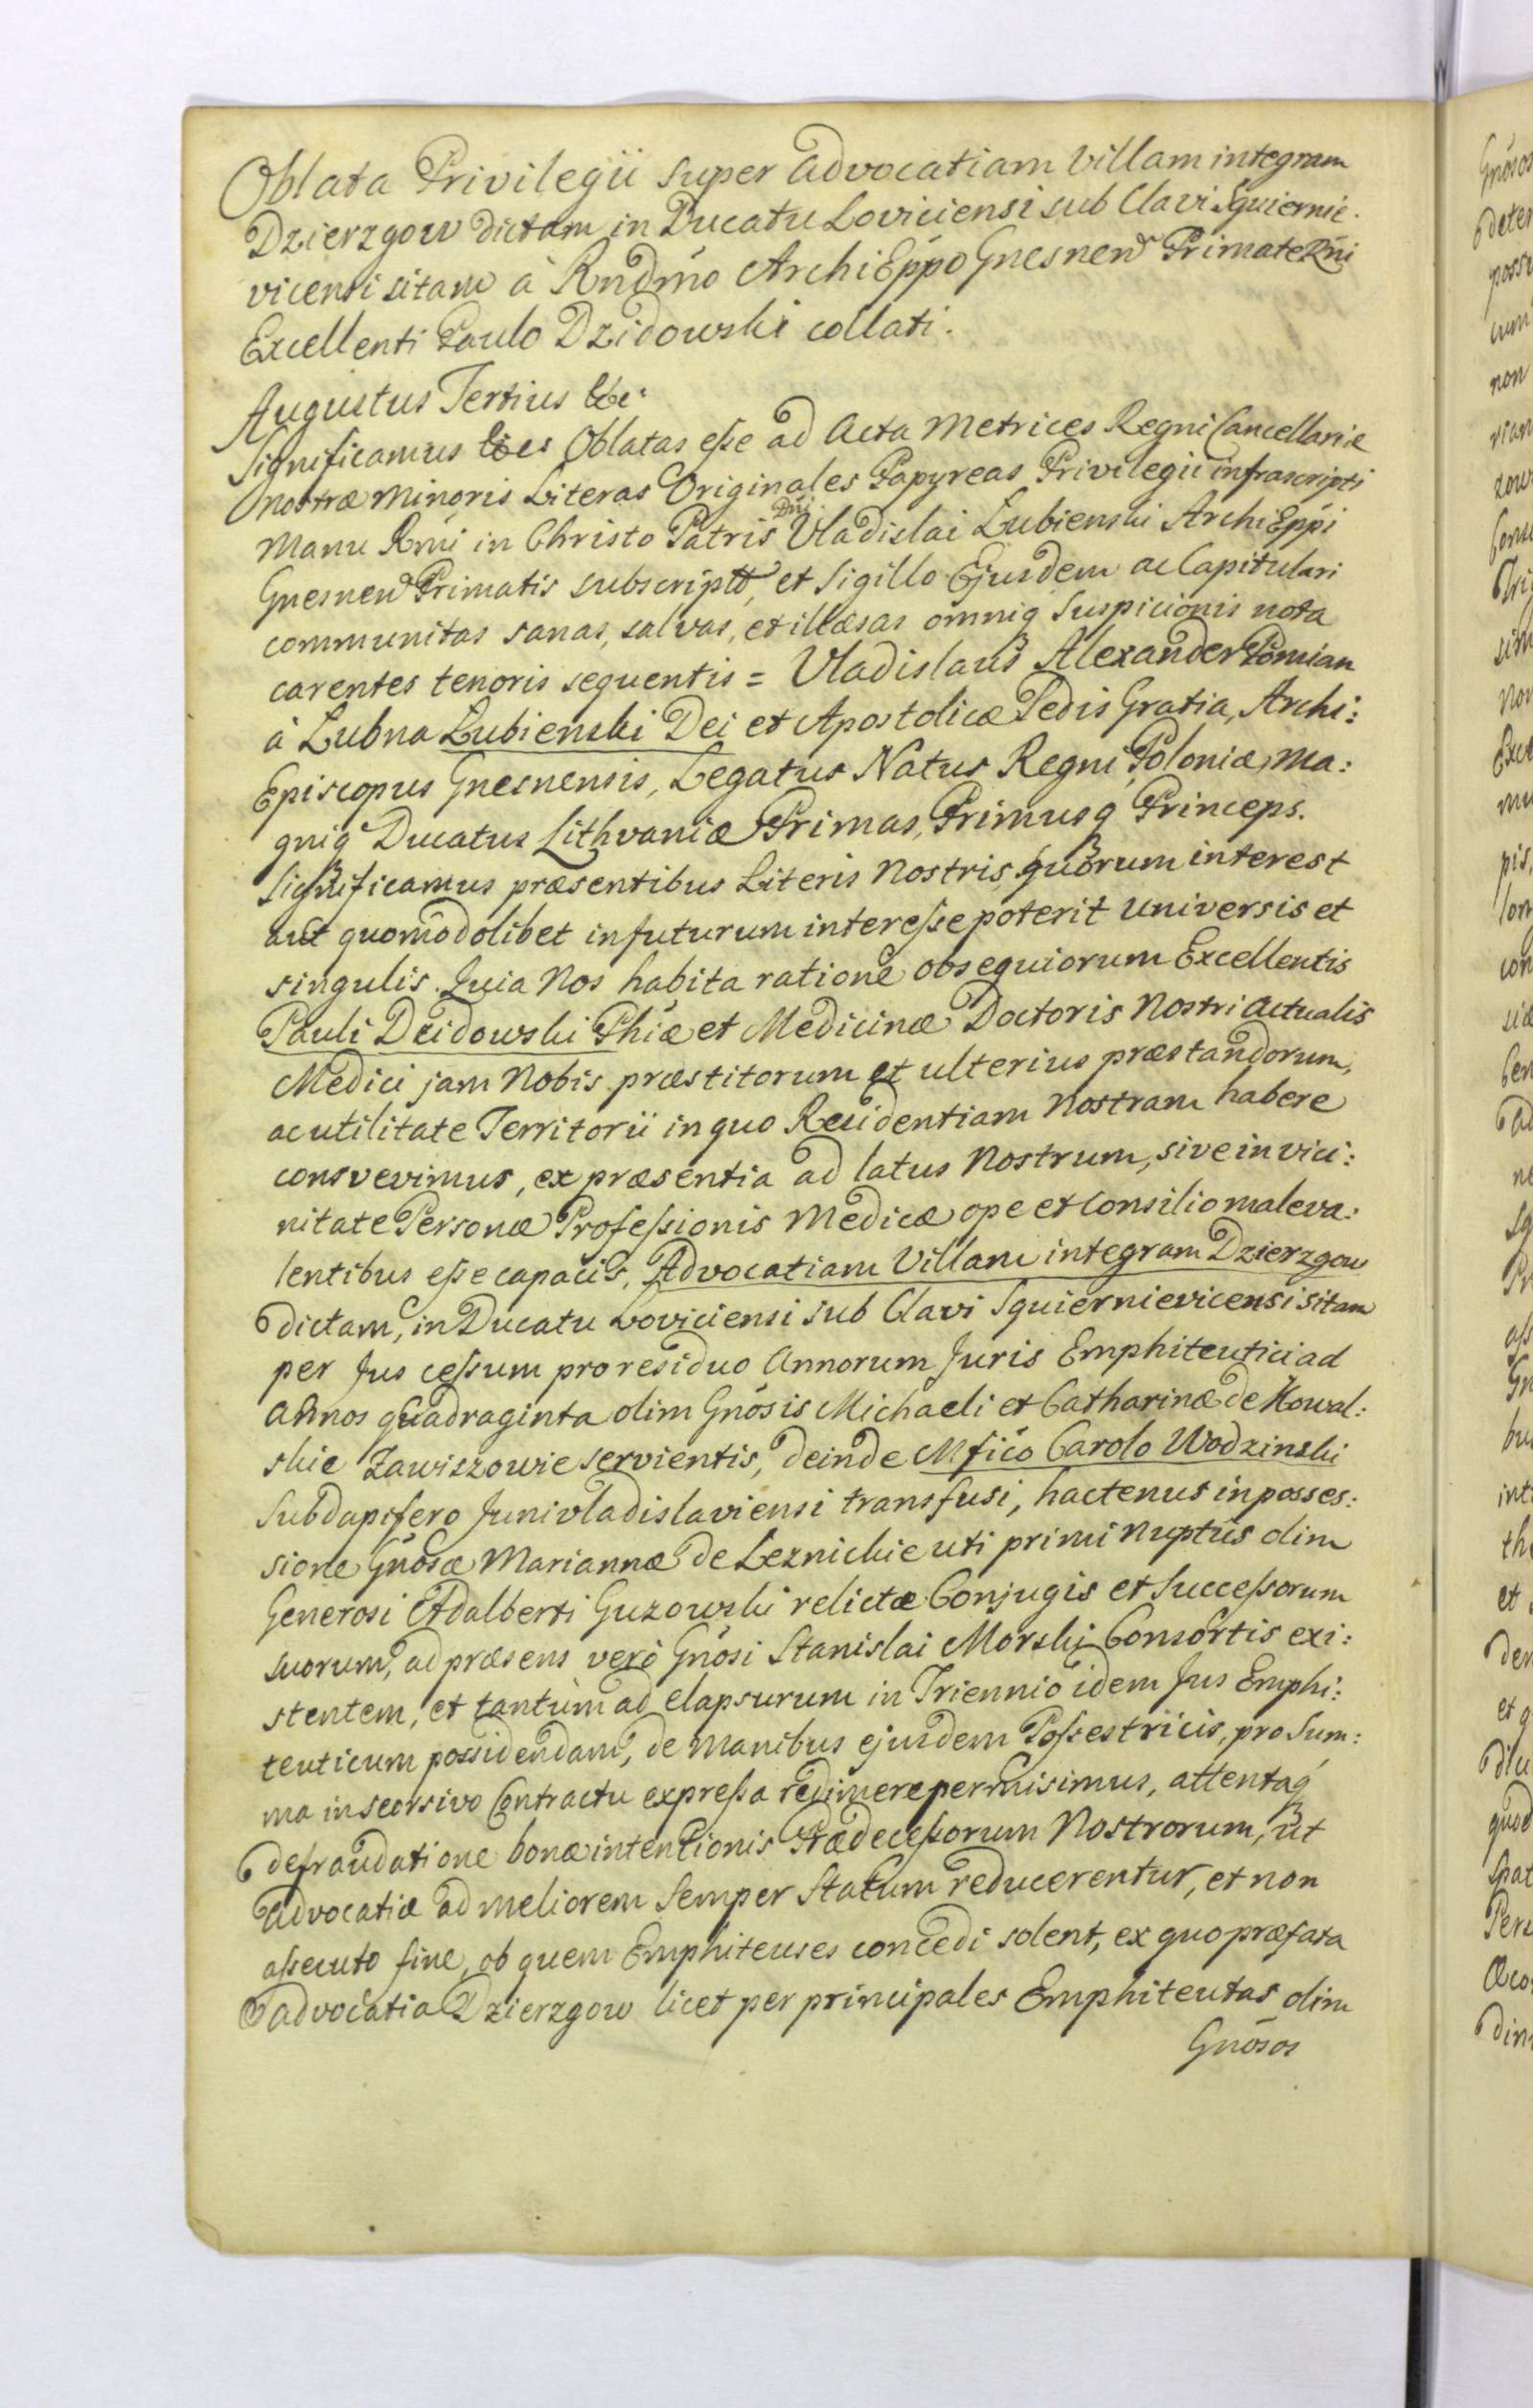 Oblata Privilegii super Advocatiam Villam integram
Dzierzgow dictam in Ducatu Loviciensi sub Clavi Squiernie-
vicensi sitam à Rndmo ArchiEppo Gnesnen Primate Rni
Excellenti Paulo Dzidowski collati.
Augustus Tertius &c:
Significamus &c es Oblatas esse ad Acta Metrices Regni Cancellariæ
nostræ Minoris Literas Originales Papyreas Privilegii infrascripti
Manu Rmi in Christo Patris Dni Vladislai Lubienski ArchiEppi
Gnesnen Primatis subscriptt, et Sigillo Ejusdem ac Capitulari
communitas sanas, salvas, et illæsas omniq Suspicionis nota
carentes tenoris sequentis = Vladislaus Alexander Pomian
à Lubna Lubienski Dei et Apostolicæ Sedis Gratia, Archi:
Episcopus Gnesnensis, Legatus Natus Regni Poloniæ, Ma:
gniq Ducatus Lithvaniæ Primas, Primusq Princeps.
Significamus præsentibus Literis Nostris quorum interest
aut quomodolibet in futurum interesse poterit Universis et
singulis. Quia Nos habita ratione obsequiorum Excellentis
Pauli Dzidowski Phiæ et Medicinæ Doctoris Nostri actualis
Medici jam Nobis præstitorum et ulterius præstandorum,
ac utilitate Territorii in quo Residentiam Nostram habere
consvevimus, ex præsentia ad latus Nostrum, sive in vici:
nitate Personæ Professionis Medicæ ope et Consilio maleva:
lentibus esse capacis, Advocatiam Villam integram Dzierzgow
dictam, in Ducatu Loviciensi sub Clavi Squiernievicensi sitam
per Jus cessum pro residuo Annorum Juris Emphiteutici ad
Annos quadraginta olim Gnosis Michaeli et Catharinæ de Kowal:
skie Zawiszowie servientis, deinde Mfico Carolo Wodzinski
Subdapifero Junivladislaviensi transfusi, hactenus in posses:
sione Gnosæ Mariannæ de Leznickie uti primi Nuptus olim
Generosi Adalberti Guzowski relictæ Conjugis et Successorum
suorum, ad præsens verò Gnosi Stanislai Morski Consortis exi:
stentem, et tantùm ad elapsurum in Triennio idem Jus Emphi:
teuticum possidendam, de Manibus ejusdem Possestricis, pro Sum:
ma in seorsivo Contractu expressa redimere permisimus, attentaq
defraudatione bonæ intentionis Prædecessorum Nostrorum, ut
Advocatiæ ad meliorem semper Statum reducerentur, et non
assecuto fine, ob quem Emphiteuses concedi solent, ex quo præfata
Advocatia Dzierzgow licet per principales Emphiteutas olim
Gnosos